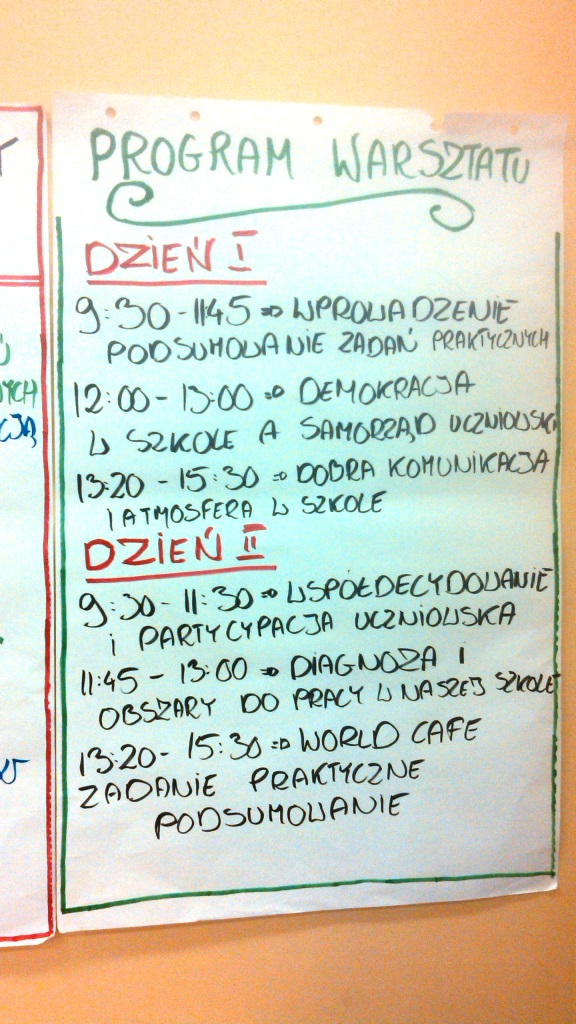 PROGRAM WARSZTATU
DZIEŃ I
9:30 - 11:45 ⇒ WPROWADZENIE
PODSUMOWANIE ZADAŃ PRAKTYCZNYCH
12:00 - 13:00 ⇒ DEMOKRACJA
W SZKOLE A SAMORZĄD
13:20 - 15:30 ⇒ DOBRA KOMUNIKACJA
I ATMOSFERA W SZKOLE
DZIEŃ II
9:30 - 11:30 ⇒ WSPÓŁDECYDOWANIE
i PARTYCYPACJA UCZNIOWSKA
11:45 - 13:00 ⇒ DIAGNOZA I
OBSZARY DO PRACY W NASZEJ SZKOLE
13:20 - 15:30 ⇒ WORLD CAFE
ZADANIE PRAKTYCZNE
PODSUMOWANIE